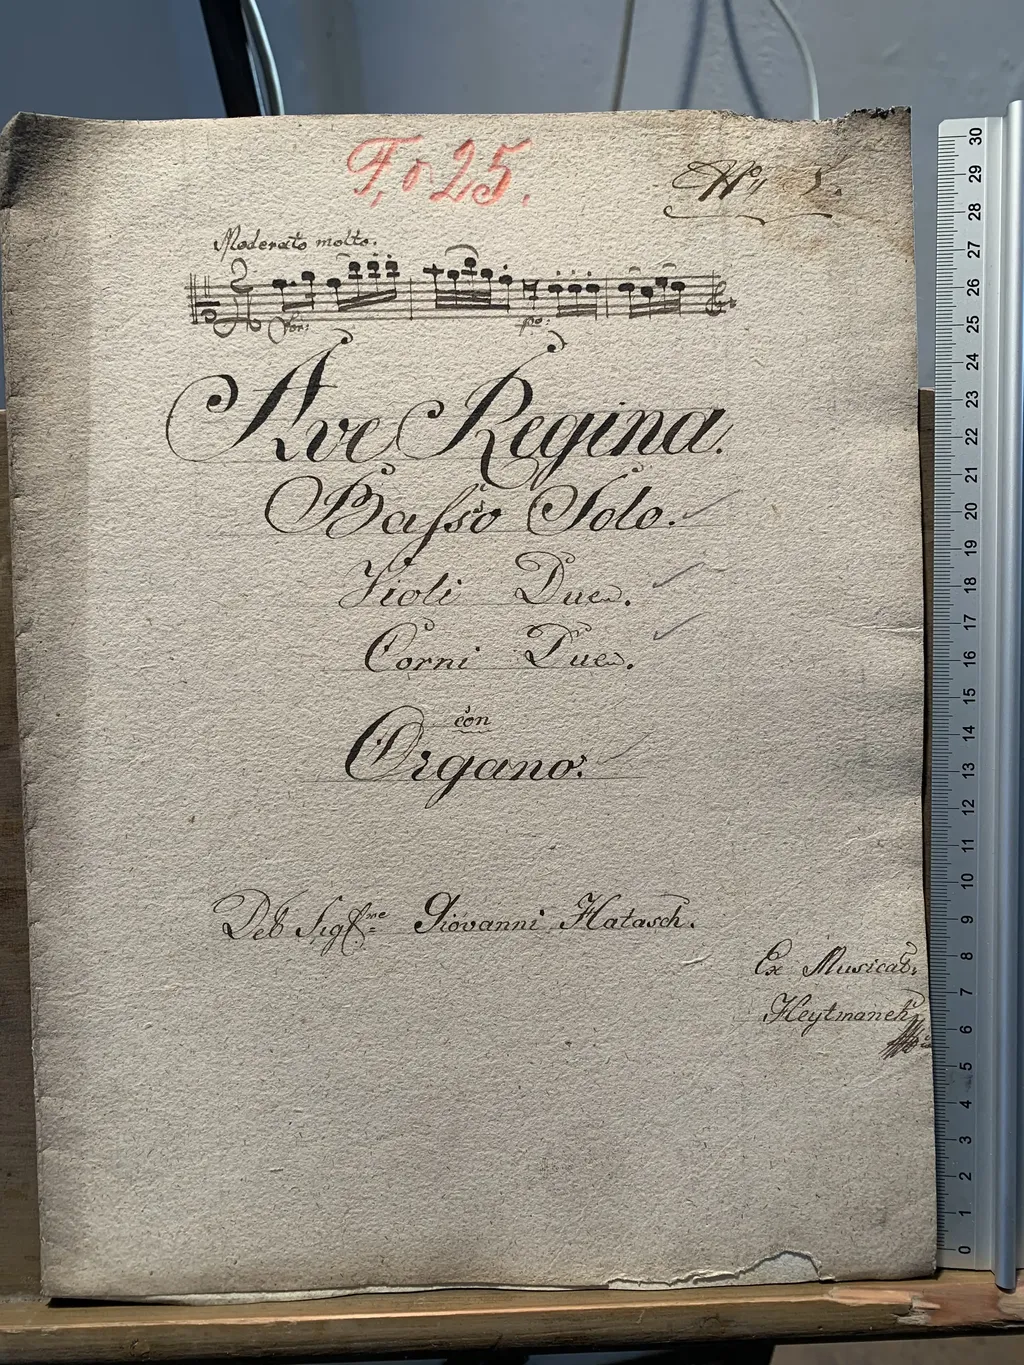 F, o 25.
No, 5.
Moderato molto.
for: po:
Ave Regina.
Basso Solo.
Violi Due.
Corni Due.
con
Organo.
Del Sigre Giovanni Hatasch.
Ex Musical:
Heytmanek
30
29
28
27
26
25
24
23
22
21
20
19
18
17
16
15
14
13
12
11
10
9
8
7
6
5
4
3
2
1
0